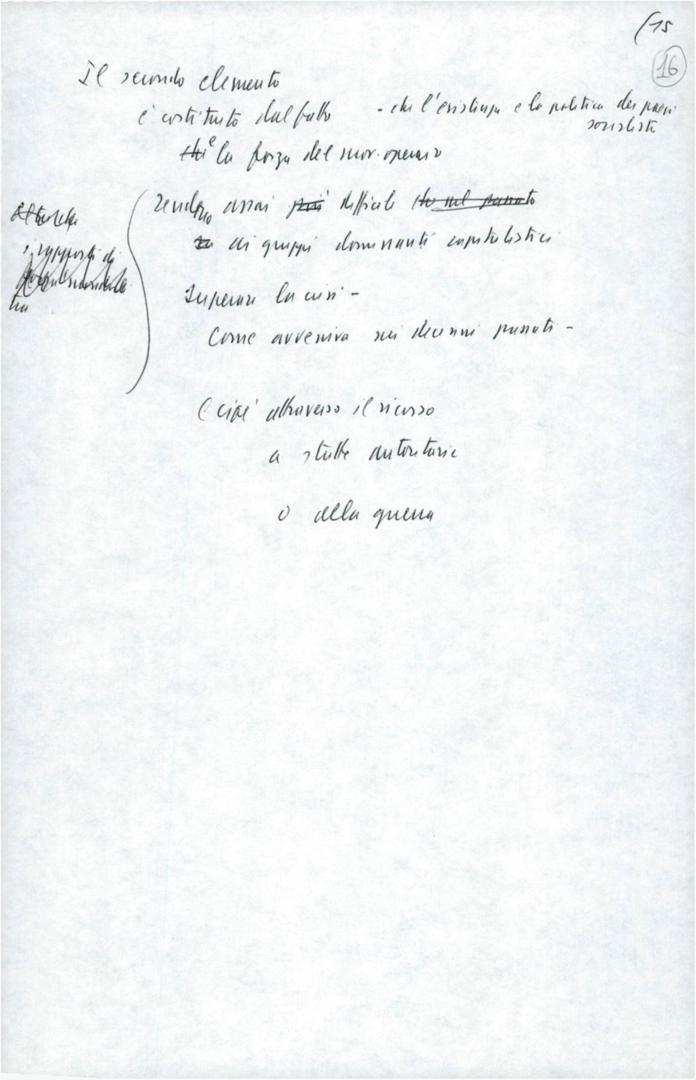 (15
16
Il secondo elemento
è costituito dal fatto - che l'esistenza e la politica dei paesi
socialisti
che e la forza del mov. operaio
rendono assai più difficile che nel passato
ai gruppi dominanti capitalistici
i rapporti di
superare la crisi -
Come avveniva nei decenni passati -
E cioè attraverso il ricorso
a svolte autoritarie
o alla guerra